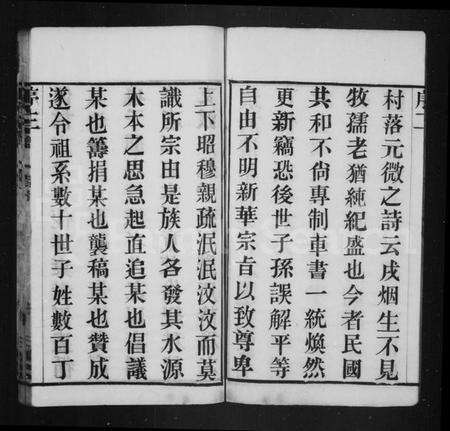 序二
村落元微之詩云戍烟生不見
牧孺老猶純紀盛也今者民國
共和不尙專制車書一統煥然
更新竊恐後世子孫誤解平等
自由不明新華宗旨以致尊卑
上下昭穆親疏泯泯汶汶而莫
識所宗由是族人各發其水源
木本之思急起直追某也倡議
某也籌捐某也襲稿某也贊成
遂令祖系數十世子姓數百丁
序三